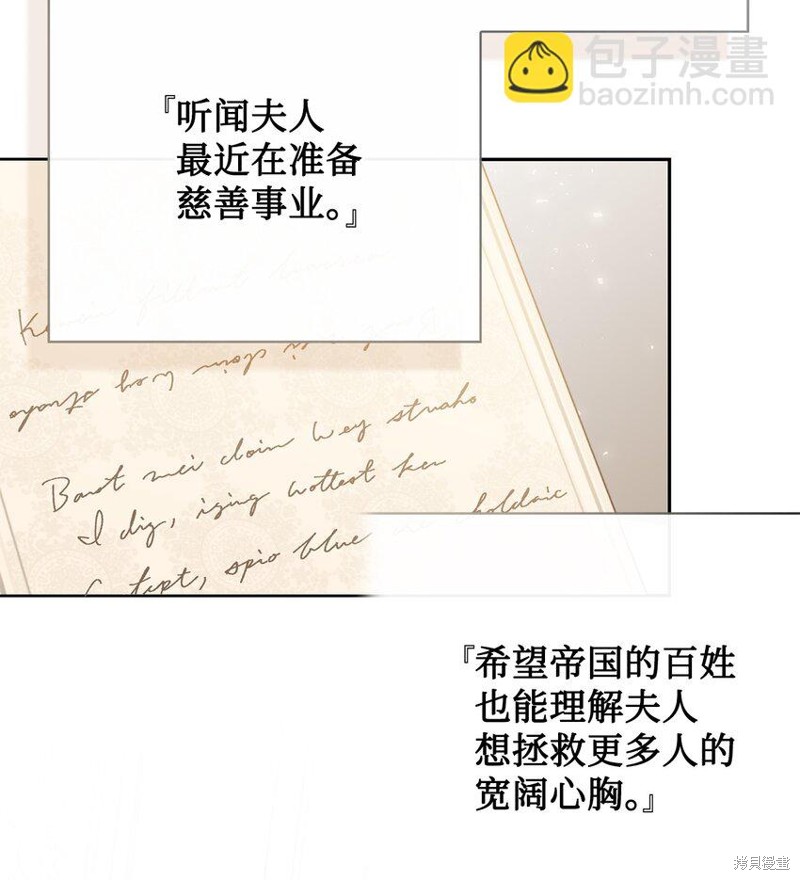 包子漫畫
baozimh.com
『听闻夫人
最近在准备
慈善事业。』
wey struaho
I dig,
wottest ken
spio blue
holdaic
『希望帝国的百姓
也能理解夫人
想拯救更多人的
宽阔心胸。』
拷貝漫畫